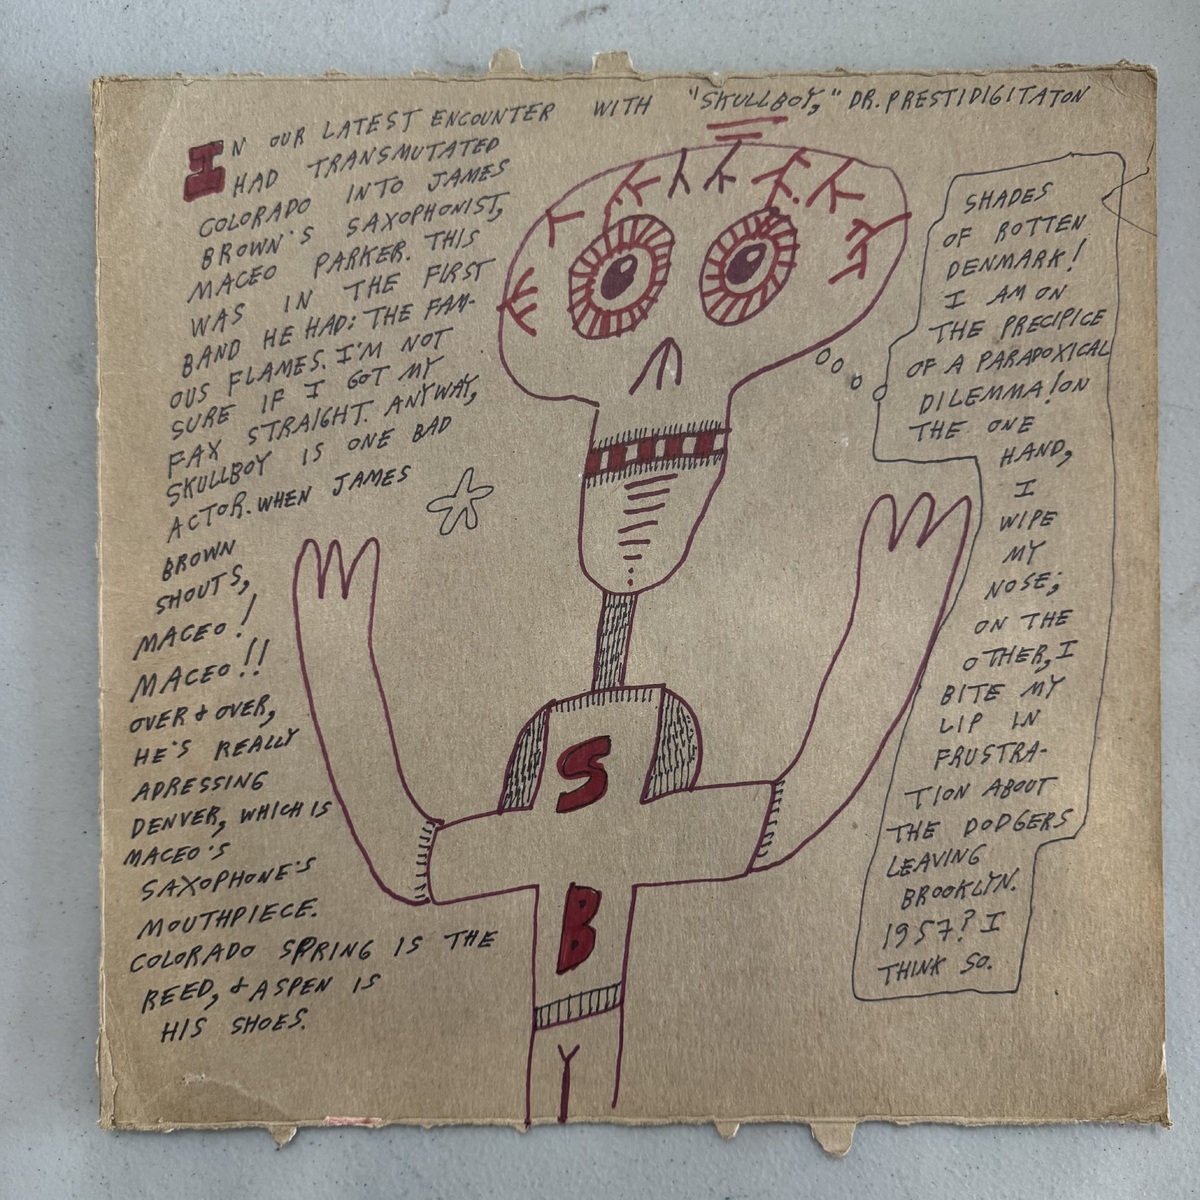 IN OUR LATEST ENCOUNTER WITH "SKULLBOY," DR. PRESTIDIGITATON
HAD TRANSMUTATED
COLORADO INTO JAMES
BROWN'S SAXOPHONIST,
MACEO PARKER. THIS
WAS IN THE FIRST
BAND HE HAD: THE FAM-
OUS FLAMES. I'M NOT
SURE IF I GOT MY
FAX STRAIGHT. ANYWAY,
SKULLBOY IS ONE BAD
ACTOR. WHEN JAMES
BROWN
SHOUTS,
MACEO!
MACEO!!
OVER & OVER,
HE'S REALLY
ADRESSING
DENVER, WHICH IS
MACEO'S
SAXOPHONE'S
MOUTHPIECE.
COLORADO SPRING IS THE
REED, & ASPEN IS
HIS SHOES.
S
B
SHADES
OF ROTTEN
DENMARK!
I AM ON
THE PRECIPICE
OF A PARADOXICAL
DILEMMA! ON
THE ONE
HAND,
I
WIPE
MY
NOSE;
ON THE
OTHER, I
BITE MY
LIP IN
FRUSTRA-
TION ABOUT
THE DODGERS
LEAVING
BROOKLYN.
1957? I
THINK SO.